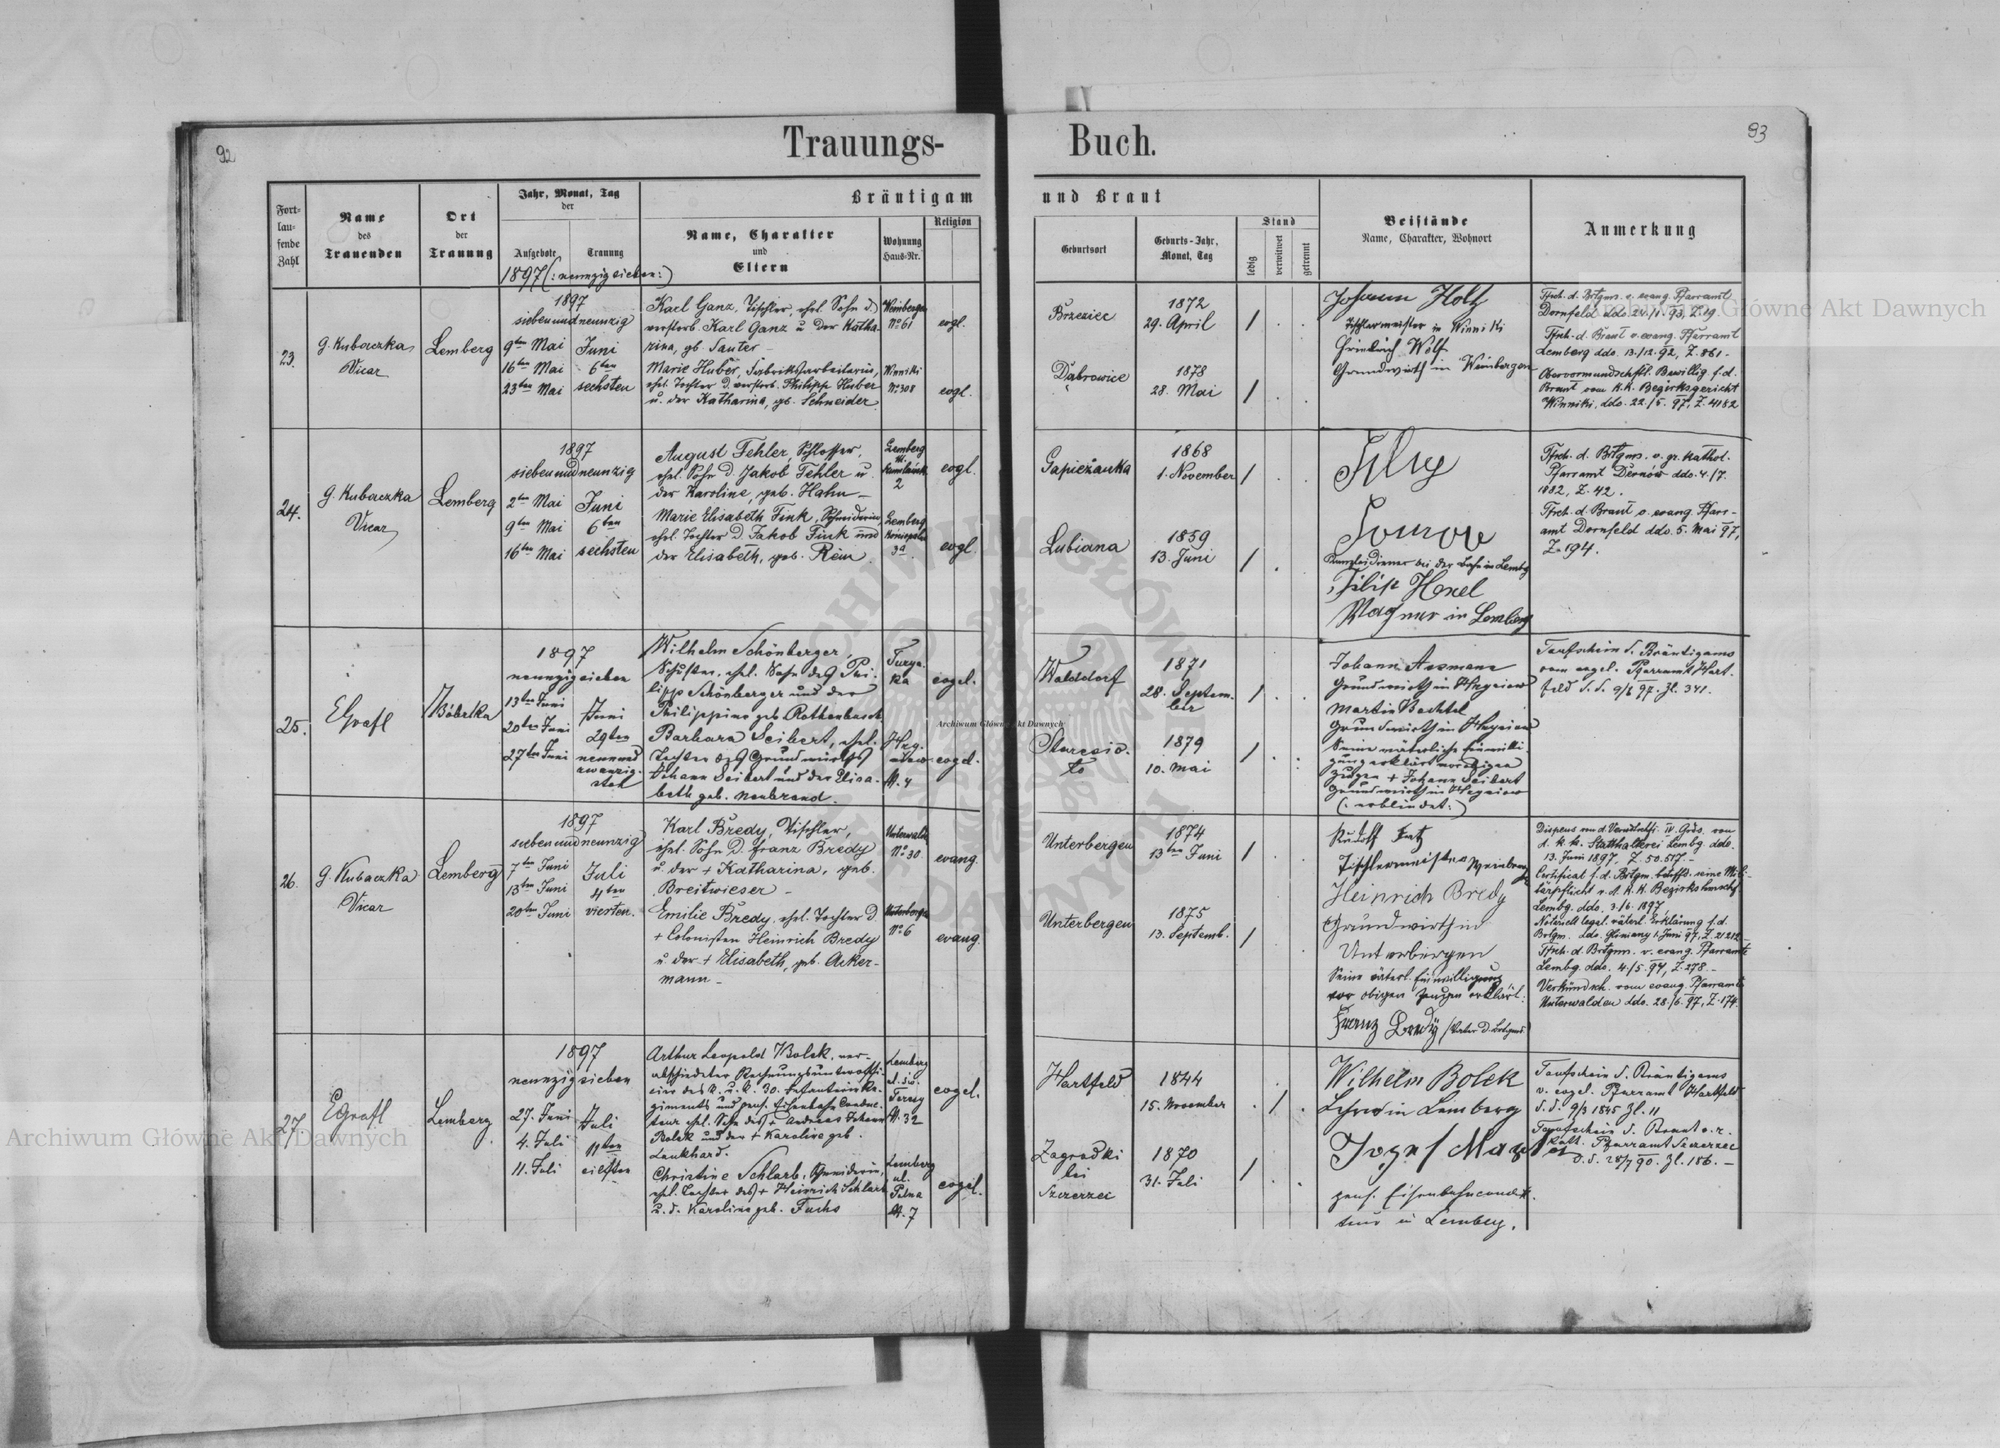 92
Trauungs-
Buch.
93
Fort-
lau-
fende
Zahl
Name
des
Trauenden
Ort
der
Trauung
Jahr, Monat, Tag
der
Aufgebote
Trauung
Bräutigam
Name, Charakter
und
Eltern
Wohnung
Haus-Nr.
Religion
und Braut
Geburtsort
Geburts-Jahr,
Monat, Tag
Stand
ledig
verwitwet
getrennt
Beistände
Name, Charakter, Wohnort
Anmerkung
1897 (: neunzig sieben :)
23.
G. Kubaczka
Vicar
Lemberg
1897
siebenundneunzig
9ten Mai
16ten Mai
23ten Mai
Juni
6ten
sechsten
Karl Ganz, Tischler, ehel. Sohn d.
verstorb. Karl Ganz u der Katha-
rina, gb. Sauter
Marie Huber, Fabriksarbeiterin,
ehel. Tochter d. verstorb. Philipp Huber
u. der Katharina, gb. Schneider
Weinbergen
No 61
Winniki
No 308
evgl.
evgl.
Brzeziec
Dąbrowice
1872
29. April
1878
28. Mai
Johann Holtz
Tischlermeister in Winniki
Heinrich Wolf
Grundwirth in Weinbergen
Tfsch. d. Brtgms. v. evang. Pfarramt
Dornfeld ddo.
Tfsch. d. Braut v. evang. Pfarramt
Lemberg ddo. 13./12. 92, Z. 861 -
Obervormundschftl. Bewillig. f. d.
Braut vom k. k. Bezirksgericht
Winniki, ddo. 22./5. 97, Z. 4182
24.
G. Kubaczka
Vicar
Lemberg
1897
siebenundneunzig
2ten Mai
9ten Mai
16ten Mai
Juni
6ten
sechsten
August Fehler, Schlosser,
ehel. Sohn d. Jakob Fehler u.
der Karoline, geb. Hahn -
Marie Elisabeth Fink, Schneiderin,
ehel. Tochter d. Jakob Fink und
der Elisabeth, geb. Rein
Lemberg
2
Lemberg
3a
evgl.
evgl.
Sapieżanka
Lubiana
1868
1. November
1859
13. Juni
Kanzleidiener bei der Bahn in Lembg
Filip Hexel
Wagner in Lemberg
Tfsch. d. Brtgms. v. gr. kathol.
Pfarramt Dernów ddo. 4./7.
1882, Z. 42.
Tfsch. d. Braut v. evang. Pfarr-
amt Dornfeld ddo. 5. Mai 97,
Z. 194.
25.
EGrafl
Bóbrka
1897
neunzig sieben
13ten Juni
20ten Juni
27ten Juni
Juni
29ten
neunund
zwanzig-
sten
Wilhelm Schönberger,
Schuster, ehel. Sohn des Phi-
lipp Schönberger und der
Philippine geb. Rothenbusch
Barbara Seibert, ehel.
Tochter des Grundwirths
Johann Seibert und der Elisa-
beth geb. Neubrand.
Turyn-
ka
N. 4
evgel.
evgel.
Walddorf
1871
28. Septem-
ber
1879
10. Mai
Johann Assmann
Grundwirth in
Martin Bechtel
Grundwirth in
Seine väterliche Einwilli-
gung erklärt vor obigen
Zeugen + Johann Seibert
Grundwirth in
(: erblindet :)
Taufschein d. Bräutigams
vom evgel. Pfarramt Hart-
feld d. d. 9/6 97. Zl. 341.
26.
G. Kubaczka
Vicar
Lemberg
1897
siebenundneunzig
7ten Juni
13ten Juni
20ten Juni
Juli
4ten
vierten.
Karl Bredy, Tischler,
ehel. Sohn d. Franz Bredy
u. der + Katharina, geb.
Breitwieser -
Emilie Bredy, ehel. Tochter d.
+ Colonisten Heinrich Bredy
u. der + Elisabeth, geb. Acker-
mann -
Unterwalden
No 30
Unterbergen
No 6
evang.
evang.
Unterbergen
Unterbergen
1874
13ten Juni
1875
13. Septemb.
Rudolf
Tischlermeister Weinbergen
Heinrich Bredy
Grundwirth in
Unterbergen
Seine väterl. Einwilligung
vor obigen Zeugen erklärt:
Franz Bredy (Vater d. Brtgms.)
Dispens von d. Verwdtschft. IV. Grds. von
d. k. k. Statthalterei Lembg. ddo.
13. Juni 1897, Z. 50.517. -
Certificat f. d. Brtgm. betrffd. seine Mili-
tärpflicht v. d. k. k. Bezirkshmschft
Lembg. ddo. 3./6. 1897
Notariell legal. väterl. Erklärung f. d.
Brtgm. ddo. Gliniany 1. Juni 97, Z.
Tfsch. d. Brtgms. v. evang. Pfarramte
Lembg. ddo. 4./5. 97, Z. 278. -
Verkündsch. vom evang. Pfarramte
Unterwalden ddo. 28./6. 97, Z. 174.
27.
EGrafl
Lemberg
1897
neunzig sieben
27. Juni
4. Juli
11. Juli
Juli
11ten
eilften
Arthur Leopold Bolek, ver-
abschiedeter Rechnungsunteroffi-
cier des k. u. k. 30. Infanterie Re-
giments und pens. Eisenbahn Conduc-
teur ehel. Sohn des + Andreas Johann
Bolek und der + Karoline geb.
Lankhard.
Christine Schlarb, Schneiderin,
ehel. Tochter des + Heinrich Schlarb
u. d. Karoline geb. Fuchs
Lemberg
ul. św.
Teresy
N. 32
Lemberg
ul.
Pełna
N. 7
evgel.
evgel.
Hartfeld
Zagrodki
bei
Szczerzec
1844
15. November
1870
31. Juli
Wilhelm Bolek
Lehrer in Lemberg
Jozef
pens. Eisenbahnconduc-
teur in Lemberg.
Taufschein d. Bräutigams
v. evgel. Pfarramt Hartfeld
d. d. 9/3 1845 Zl. 11
Taufschein d. Braut v. r.
kath. Pfarramt Szczerzec
d. d. 28/7 90. Zl. 186. -
Archiwum Główne Akt Dawnych
Archiwum Główne Akt Dawnych
Archiwum Główne Akt Dawnych